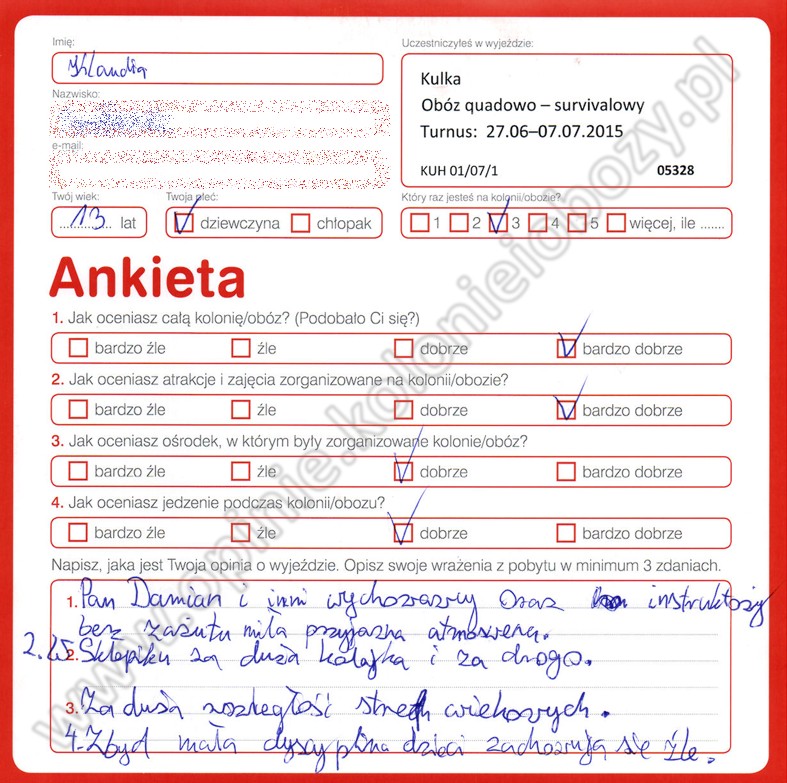 Imię:
Klaudia
Nazwisko:
e-mail:
Twój wiek:
13 lat
Twoja płeć:
dziewczyna chłopak
Uczestniczyłeś w wyjeździe:
Kulka
Obóz quadowo – survivalowy
Turnus: 27.06–07.07.2015
KUH 01/07/1 05328
Który raz jesteś na kolonii/obozie?
1 2 3 4 5 więcej, ile .......
Ankieta
1. Jak oceniasz całą kolonię/obóz? (Podobało Ci się?)
bardzo źle źle dobrze bardzo dobrze
2. Jak oceniasz atrakcje i zajęcia zorganizowane na kolonii/obozie?
bardzo źle źle dobrze bardzo dobrze
3. Jak oceniasz ośrodek, w którym były zorganizowane kolonie/obóz?
bardzo źle źle dobrze bardzo dobrze
4. Jak oceniasz jedzenie podczas kolonii/obozu?
bardzo źle źle dobrze bardzo dobrze
Napisz, jaka jest Twoja opinia o wyjeździe. Opisz swoje wrażenia z pobytu w minimum 3 zdaniach.
1. Pan Damian i inni wychozawcy oraz instruktoży
bez zazutu miła przyjazna atmoswera.
2. W Sklepiku za duża kolejka i za drogo.
3. Za duża rozległość stref wiekowych.
4. Zbyd mała dyscyplina dzieci zachowują się źle.
www.opinie.kolonieiobozy.pl